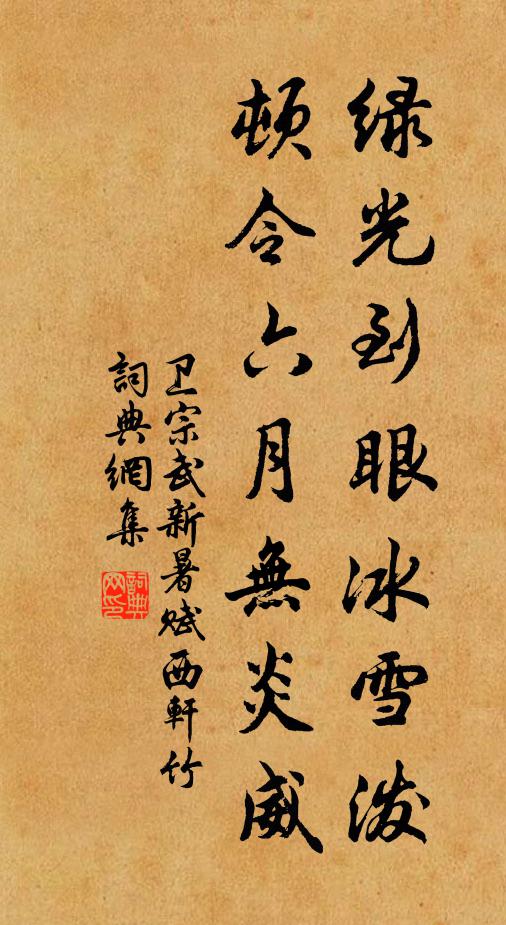 绿光到眼冰雪泼
顿令六月無炎威
卫宗武新暑赋西軒竹
詞典網集
詞典网印